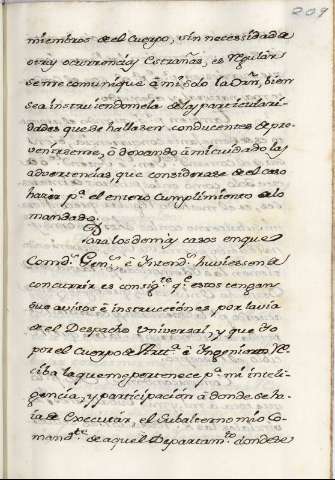 209
miembros de el Cuerpo, sin necessidad de
otras ocurrencias Estrañas, es Regular
se me comunique à mi solo la Orñ, bien
sea instruiendomela de las particulari-
dades que se hallasen conducentes de pre-
venirseme, ò dexando à mi cuidado las
advertencias, que considerase de el caso
hazer pª el entero cumplimiento de lo
mandado.
Para los demás casos en que
Comdᵗ Genˡ, è Yntendˢ huviesen de
concurrir es consigᵗᵉ qᵉ estos tengan
sus avisos è instrucciones, por la via
de el Despacho Universal, y que Yo
por el Cuerpo de Artª è Yngenieros Re-
ciba la que me pertenece pª mi inteli-
gencia, y participacion à donde se ha-
ia de Executar, el Subalterno mio Co-
mandᵗᵉ de aquel Departamᵗᵒ donde se